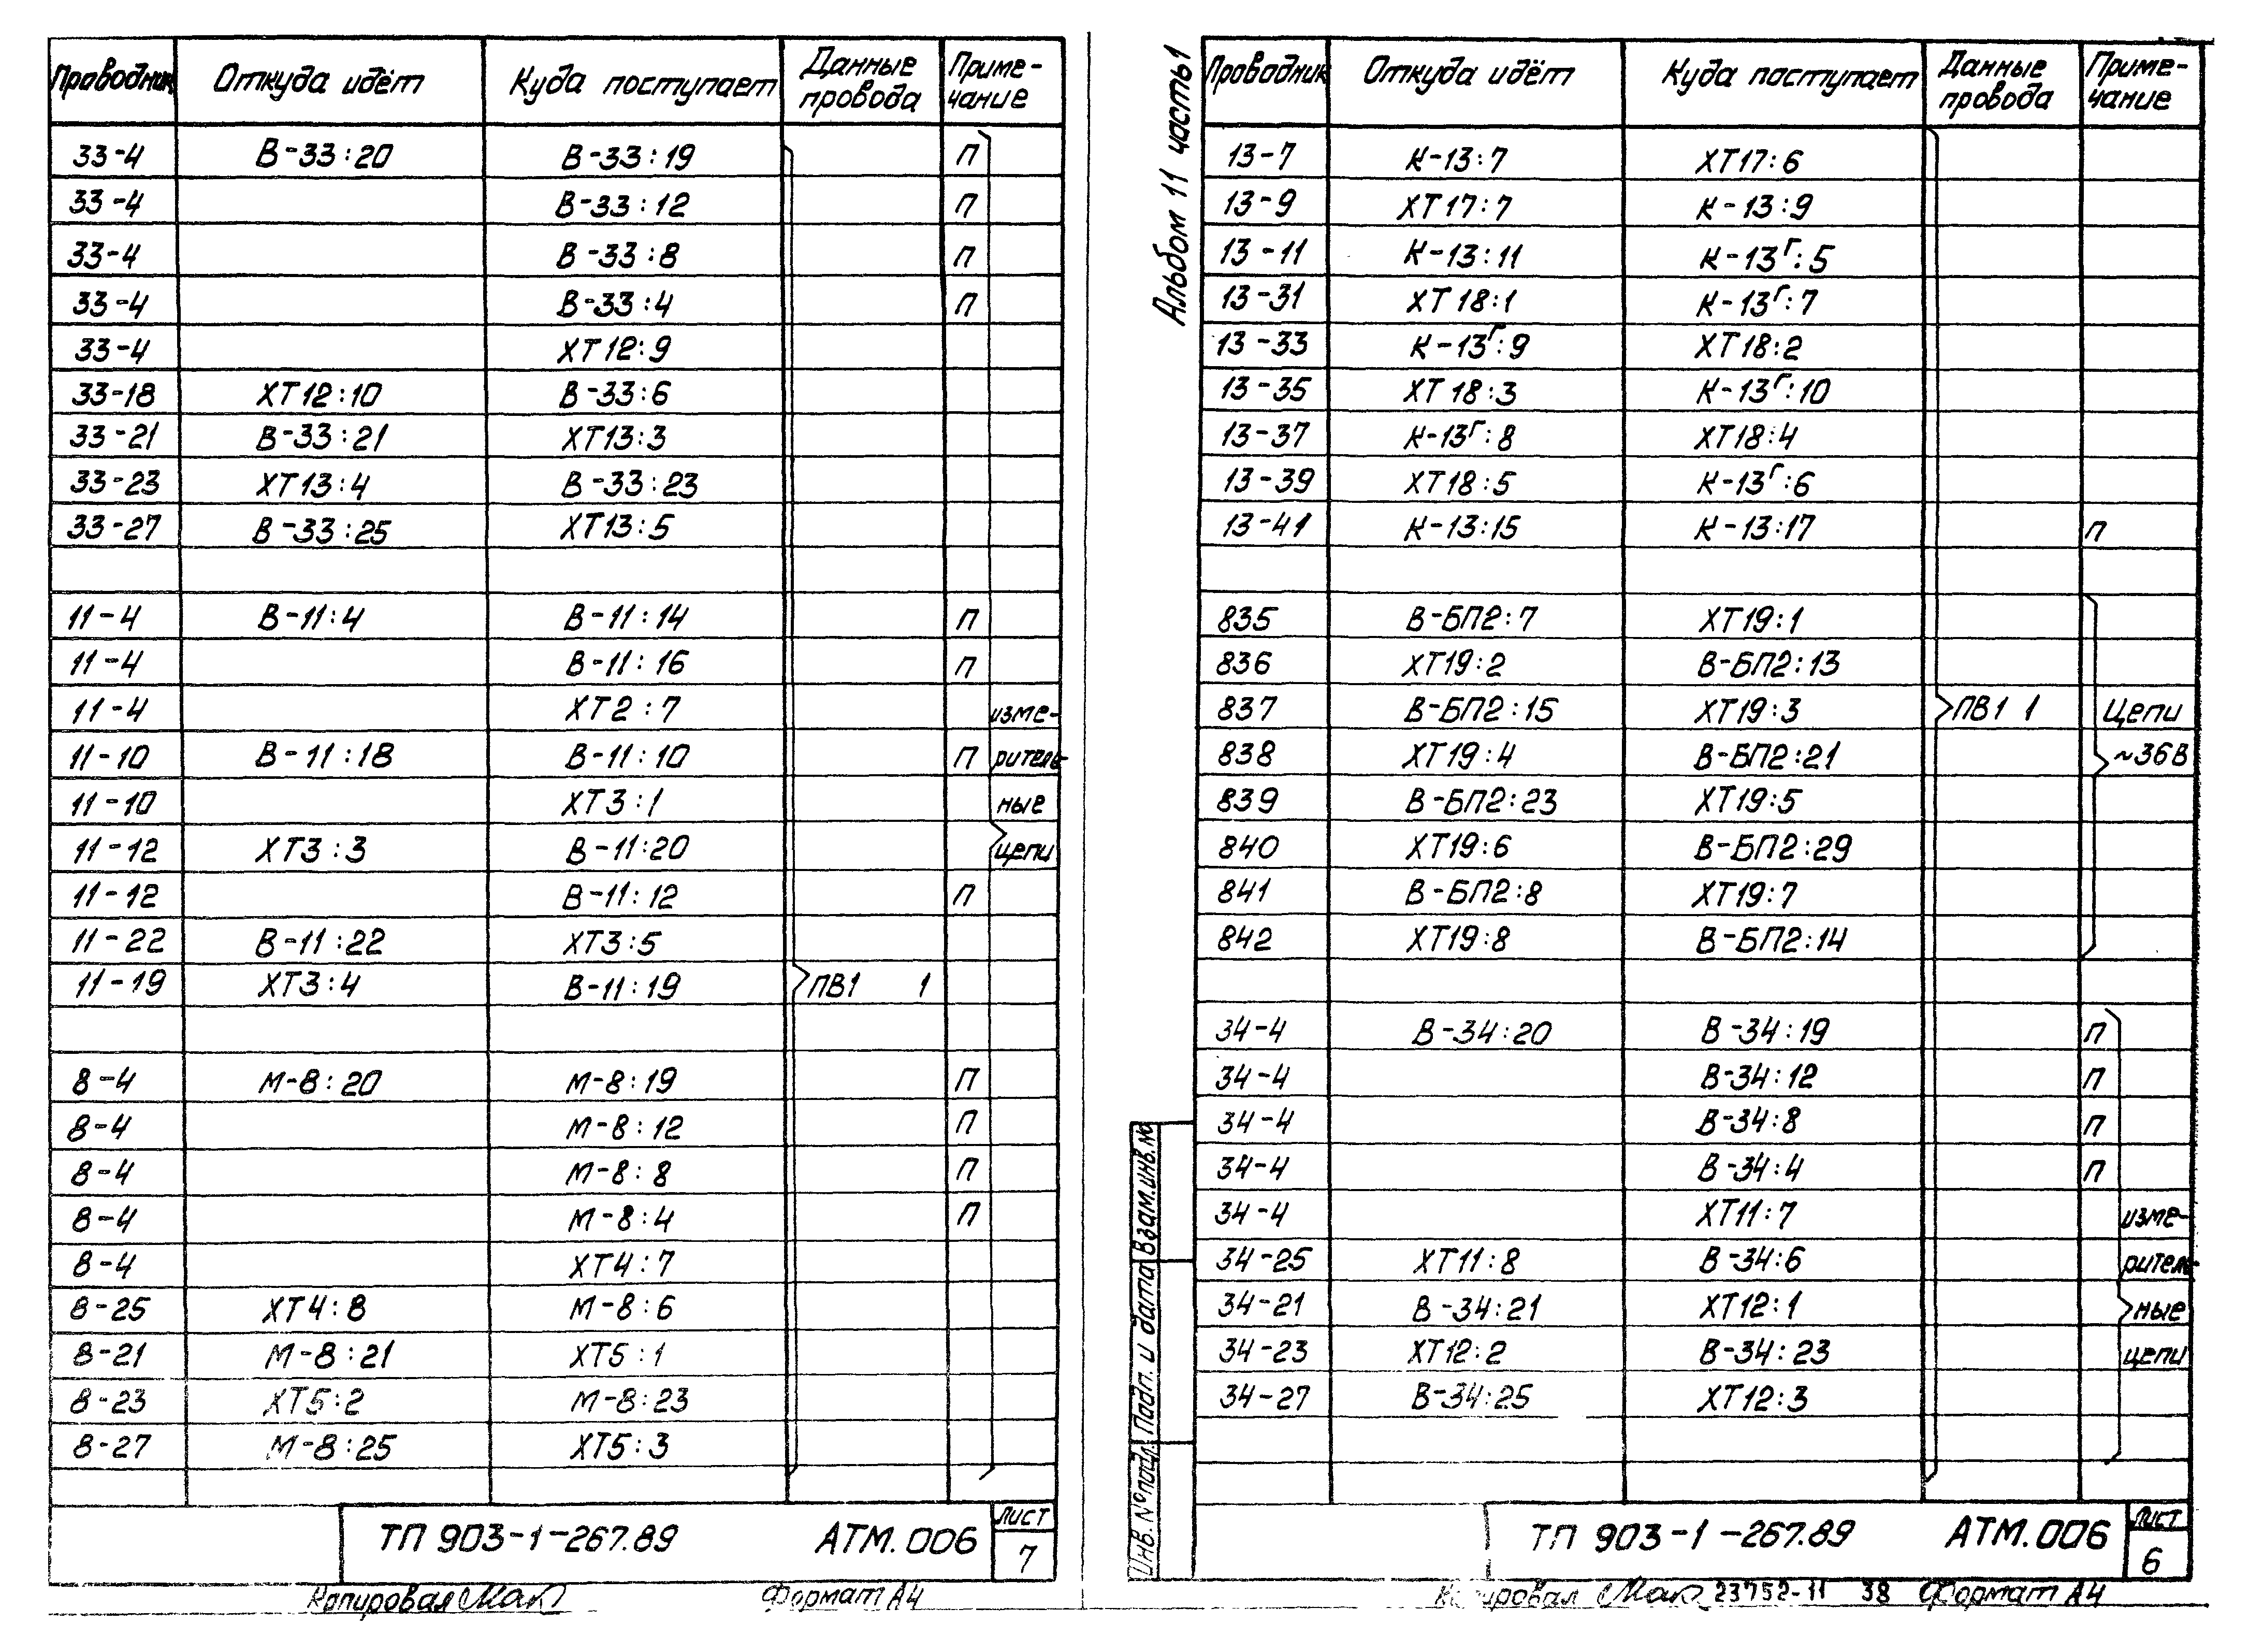 Проводник Откуда идёт Куда поступает Данные провода Приме-чание
33-4 В-33:20 В-33:19 П
33-4 В-33:12 П
33-4 В-33:8 П
33-4 В-33:4 П
33-4 ХТ12:9
33-18 ХТ12:10 В-33:6
33-21 В-33:21 ХТ13:3
33-23 ХТ13:4 В-33:23
33-27 В-33:25 ХТ13:5
11-4 В-11:4 В-11:14 П
11-4 В-11:16 П
11-4 ХТ2:7 изме-
11-10 В-11:18 В-11:10 П ритель-
11-10 ХТ3:1 ные
11-12 ХТ3:3 В-11:20 цепи
11-12 В-11:12 П
11-22 В-11:22 ХТ3:5
11-19 ХТ3:4 В-11:19 ПВ1 1
8-4 М-8:20 М-8:19 П
8-4 М-8:12 П
8-4 М-8:8 П
8-4 М-8:4 П
8-4 ХТ4:7
8-25 ХТ4:8 М-8:6
8-21 М-8:21 ХТ5:1
8-23 ХТ5:2 М-8:23
8-27 М-8:25 ХТ5:3
ТП 903-1-267.89 АТМ.006 Лист 7
Копировал Формат А4
Альбом 11 часть1
Проводник Откуда идёт Куда поступает Данные провода Приме-чание
13-7 К-13:7 ХТ17:6
13-9 ХТ17:7 К-13:9
13-11 К-13:11 К-13Г:5
13-31 ХТ18:1 К-13Г:7
13-33 К-13Г:9 ХТ18:2
13-35 ХТ18:3 К-13Г:10
13-37 К-13Г:8 ХТ18:4
13-39 ХТ18:5 К-13Г:6
13-41 К-13:15 К-13:17 П
835 В-БП2:7 ХТ19:1
836 ХТ19:2 В-БП2:13
837 В-БП2:15 ХТ19:3 ПВ1 1 Цепи
838 ХТ19:4 В-БП2:21 ~36В
839 В-БП2:23 ХТ19:5
840 ХТ19:6 В-БП2:29
841 В-БП2:8 ХТ19:7
842 ХТ19:8 В-БП2:14
34-4 В-34:20 В-34:19 П
34-4 В-34:12 П
34-4 В-34:8 П
34-4 В-34:4 П
34-4 ХТ11:7 изме-
34-25 ХТ11:8 В-34:6 ритель-
34-21 В-34:21 ХТ12:1 ные
34-23 ХТ12:2 В-34:23 цепи
34-27 В-34:25 ХТ12:3
Инв. №подл. Подп. и дата Взам.инв.№
ТП 903-1-267.89 АТМ.006 Лист 6
Копировал 23752-11 38 Формат А4